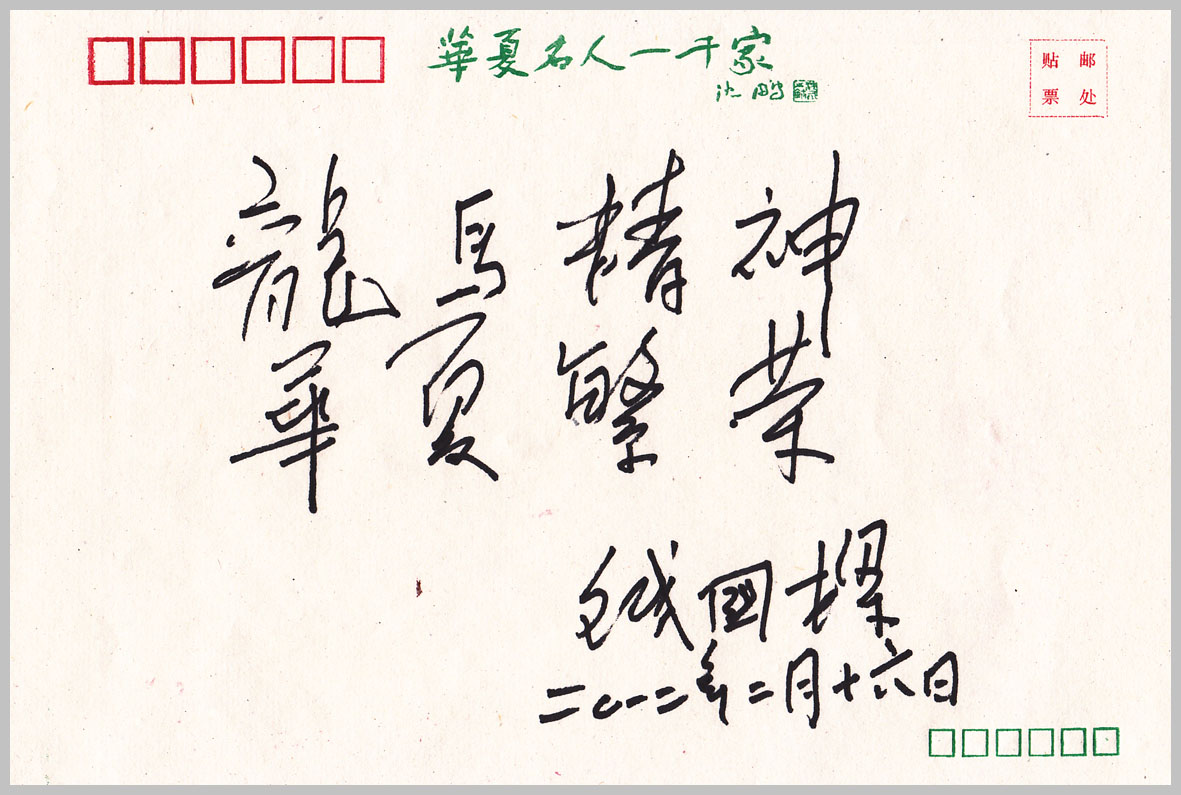 華夏名人一千家
沈鹏
贴 邮
票 处
龍馬精神
華夏繁荣
钱國樑
二〇一二年二月十六日